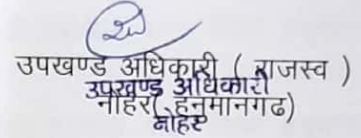 उपखण्ड अधिकारी ( राजस्व )
उपखण्ड अधिकारी
नोहर( हनुमानगढ)
नोहर